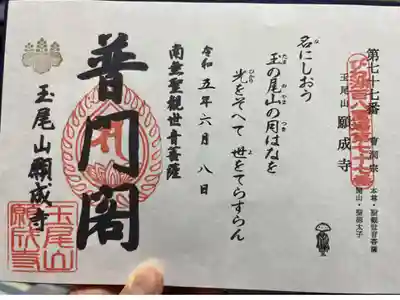 第七十七番 曹洞宗 本尊・聖観世音菩薩
開山・聖徳太子
玉尾山 願成寺
びわ湖百八霊場第七十七番
名にしおう
玉の尾山の月はなを
光をそへて 世をてらすらん
令和五年六月八日
南無聖観世音菩薩
普門閣
玉尾山願成寺
玉尾山
願成寺